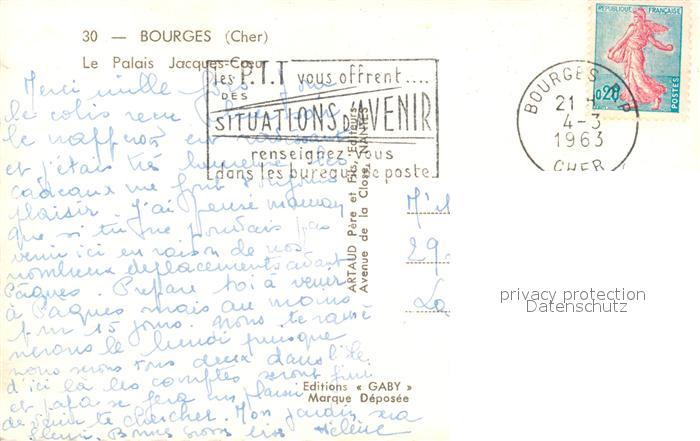 30 — BOURGES (Cher)
Le Palais Jacques-Cœur
les P.T.T vous offrent....
DES
SITUATIONS D'AVENIR
renseignez-vous
dans les bureaux de poste
REPUBLIQUE FRANÇAISE
0,20
POSTES
BOURGES
21 H
4-3
1963
CHER
Merci mille fois
le colis reçu
le napperon est
et j'étais très heureuse
cadeaux me font toujours
plaisir. J'ai pensé maman
que si tu ne pouvais pas
venir ici en raison de nos
nombreux déplacements avant
Pâques. Prépare toi à venir
à Pâques mais au moins
pour 15 jours. Nous te ramè
nerons le lundi puisque
nous serons tous deux dans l'Ile
d'ici là les comptes seront finis
et papa se fera un plaisir
de venir te chercher. Mon jardin sera
fleuri. Bonnes grosses bises Hélène
ARTAUD Père et Fils, Editeurs
Avenue de la Close, NANTES
29
La
Editions « GABY »
Marque Déposée
privacy protection
Datenschutz